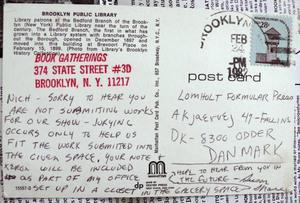 BROOKLYN PUBLIC LIBRARY
Library patrons at the Bedford Branch of the Brooklyn (New York) Public Library near the turn of the century. The Bedford Branch, the first in what has grown into a Library system with branches throughout the Borough, opened in December 1897 and moved into its building at Brevoort Place on February 15, 1899. (Photo from Library's Brooklyn History Collection.)
BOOK GATHERINGS
374 STATE STREET #3D
BROOKLYN, N.Y. 11217
NICH - SORRY TO HEAR YOU
ARE NOT SUBMITTING WORKS
FOR OUR SHOW - JURYING
OCCURS ONLY TO HELP US
FIT THE WORK SUBMITTED INTO
THE GIVEN SPACE, YOUR NOTE
XEROX WILL BE INCLUDED
AS PART OF MY OFFICE
SET UP IN A CLOSET IN THE GALLERY SPACE
HOPE TO HEAR FROM YOU IN
THE FUTURE
BROOKLYN,
FEB
PM
post card
LOMHOLT FORMULAR PRESS
AKJAERVEJ 49-FALLING
DK-8300 ODDER
DANMARK
MANHATTAN
dp